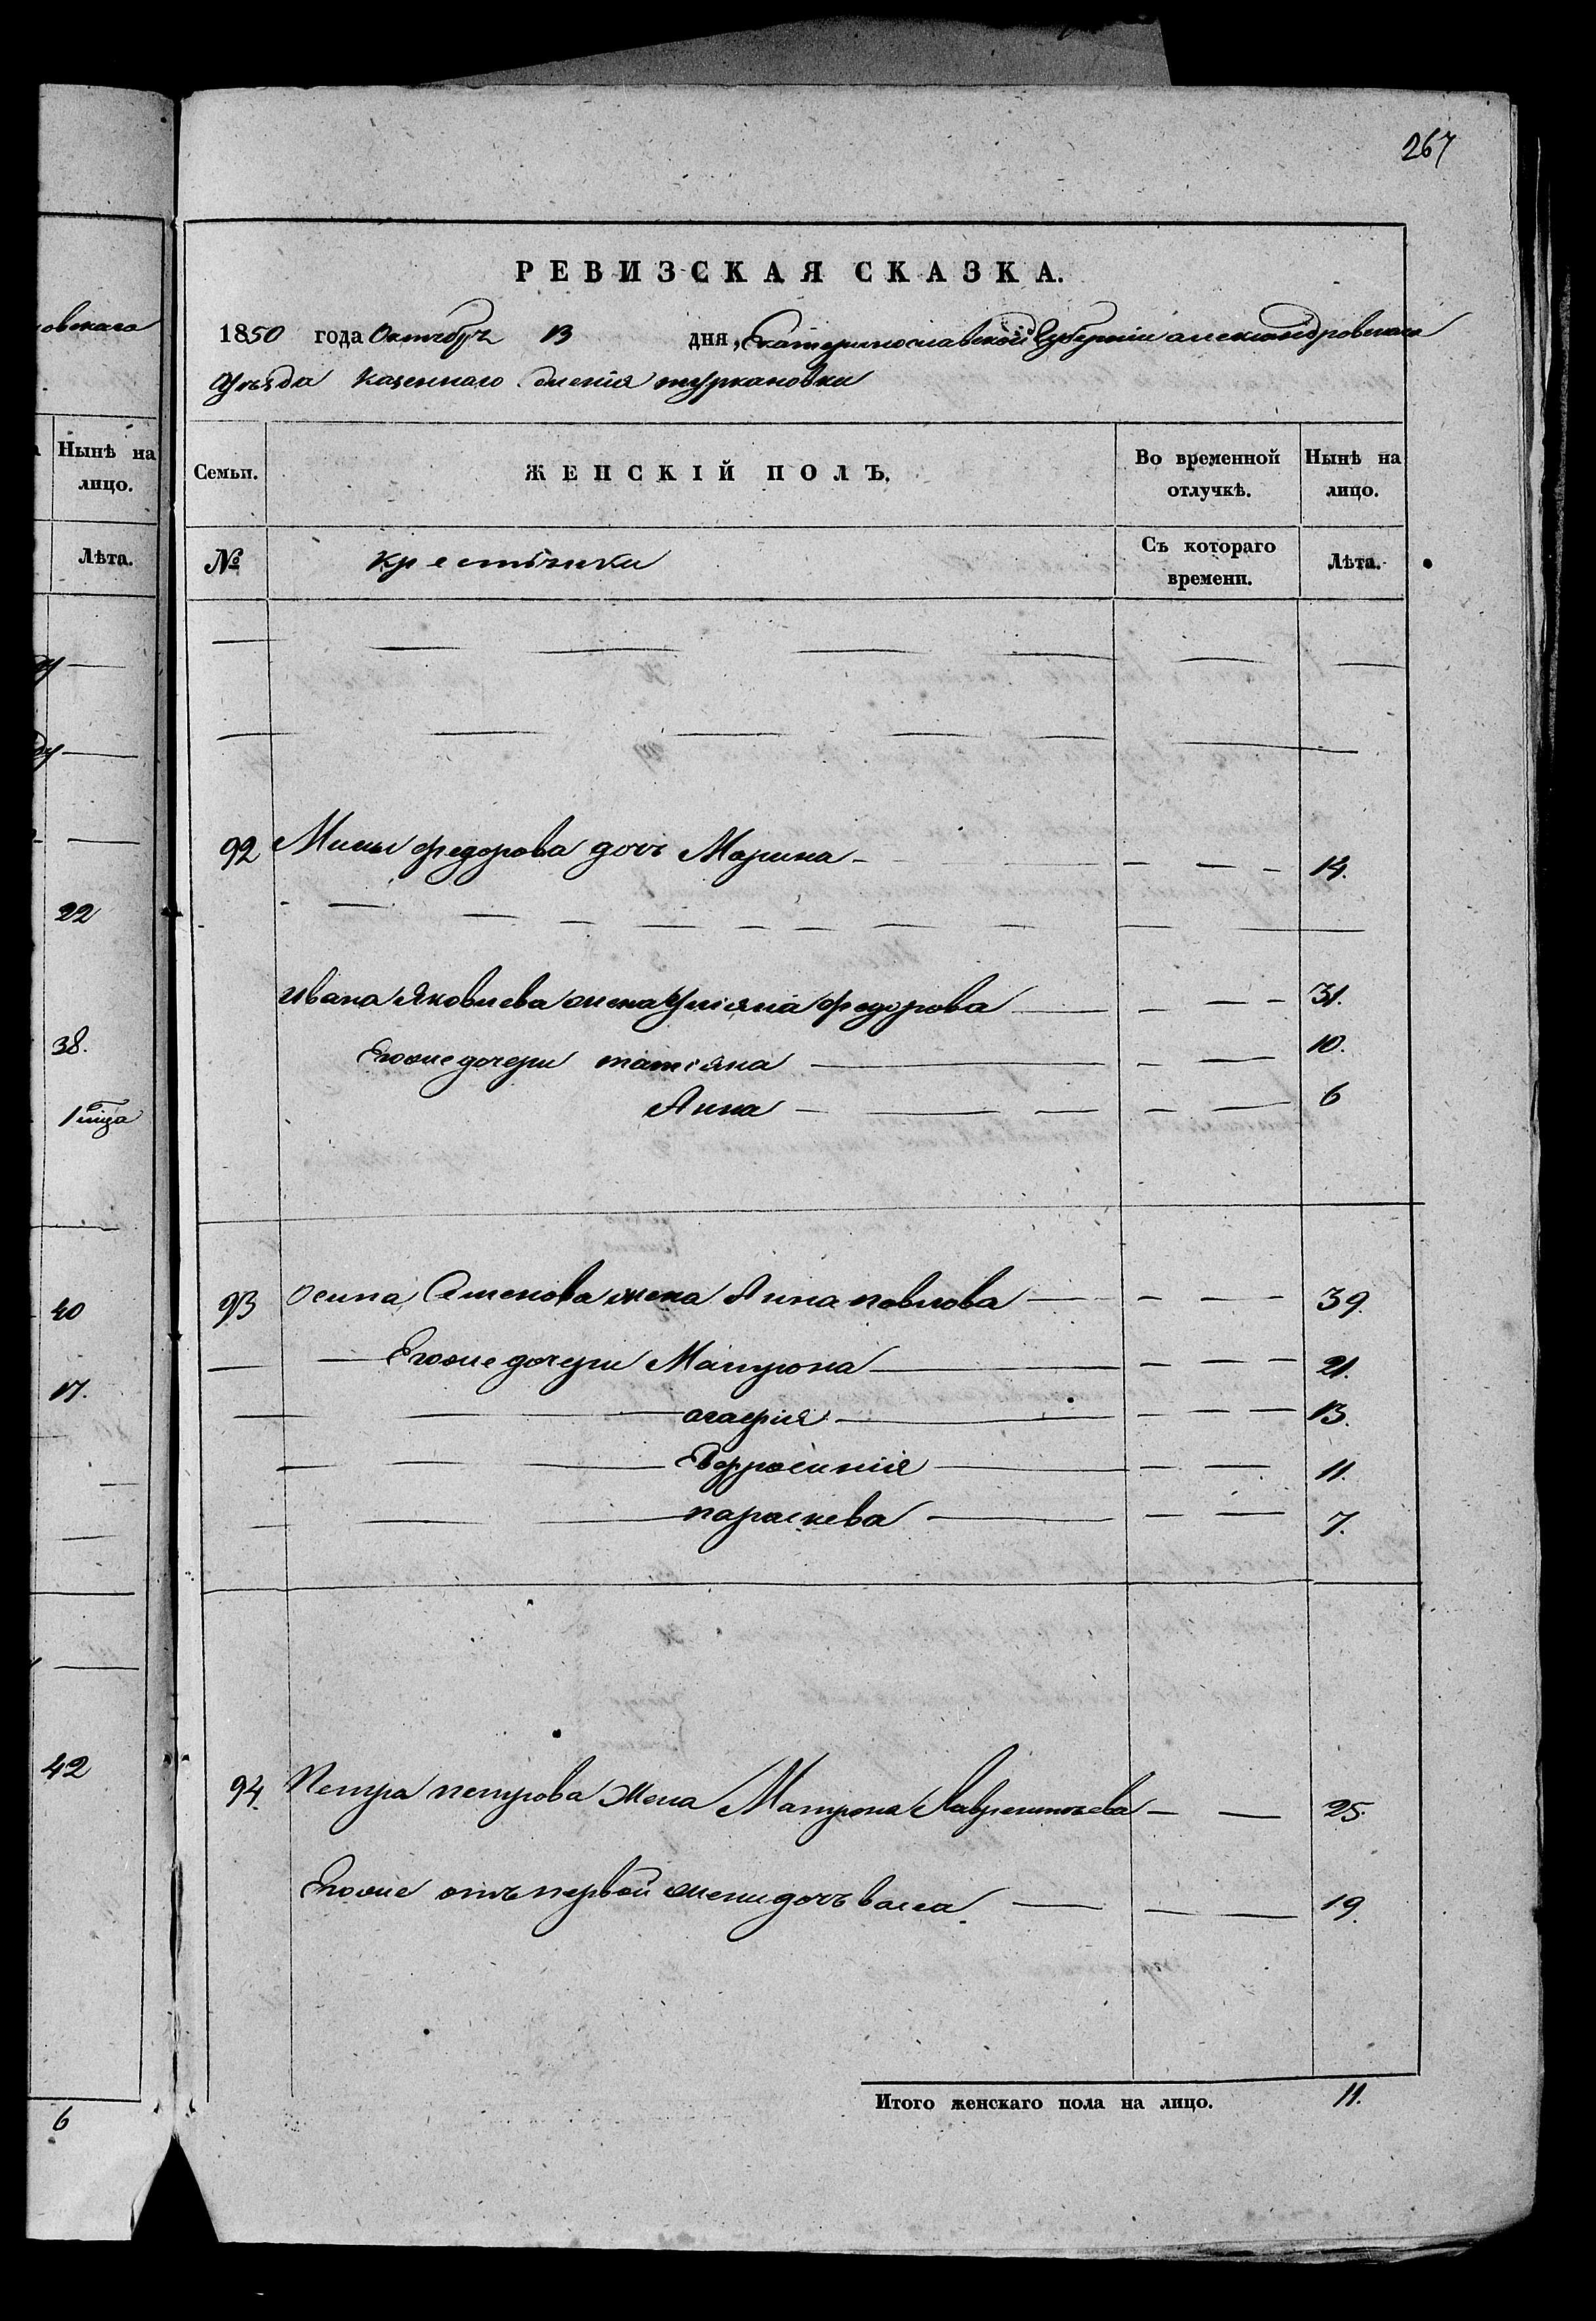 267
РЕВИЗСКАЯ СКАЗКА.
1850 года Октября 13 дня, Екатеринославской Губернии александровскаго
Уѣзда Казеннаго Селенія туркановки
Семьи. ЖЕНСКІЙ ПОЛЪ. Во временной отлучкѣ. Нынѣ на лицо.
№ крестьянки Съ котораго времени. Лѣта.
92 Мины федорова дочь Марина 14.
ивана Яковлева жена Ульяна федорова 31.
Егоже дочери татіяна 10.
Анна 6
93 осипа Семенова жена Анна павлова 39.
Егоже дочери Матрона 21.
агафия 13.
Ефросинія 11.
параскева 7.
94. Петра петрова жена Матрона Лаврентьева 25.
Егоже отъ первой жени дочь васса 19.
Итого женскаго пола на лицо. 11.
овскаго
Нынѣ на
лицо.
Лѣта.
22
38.
40
17.
42
6